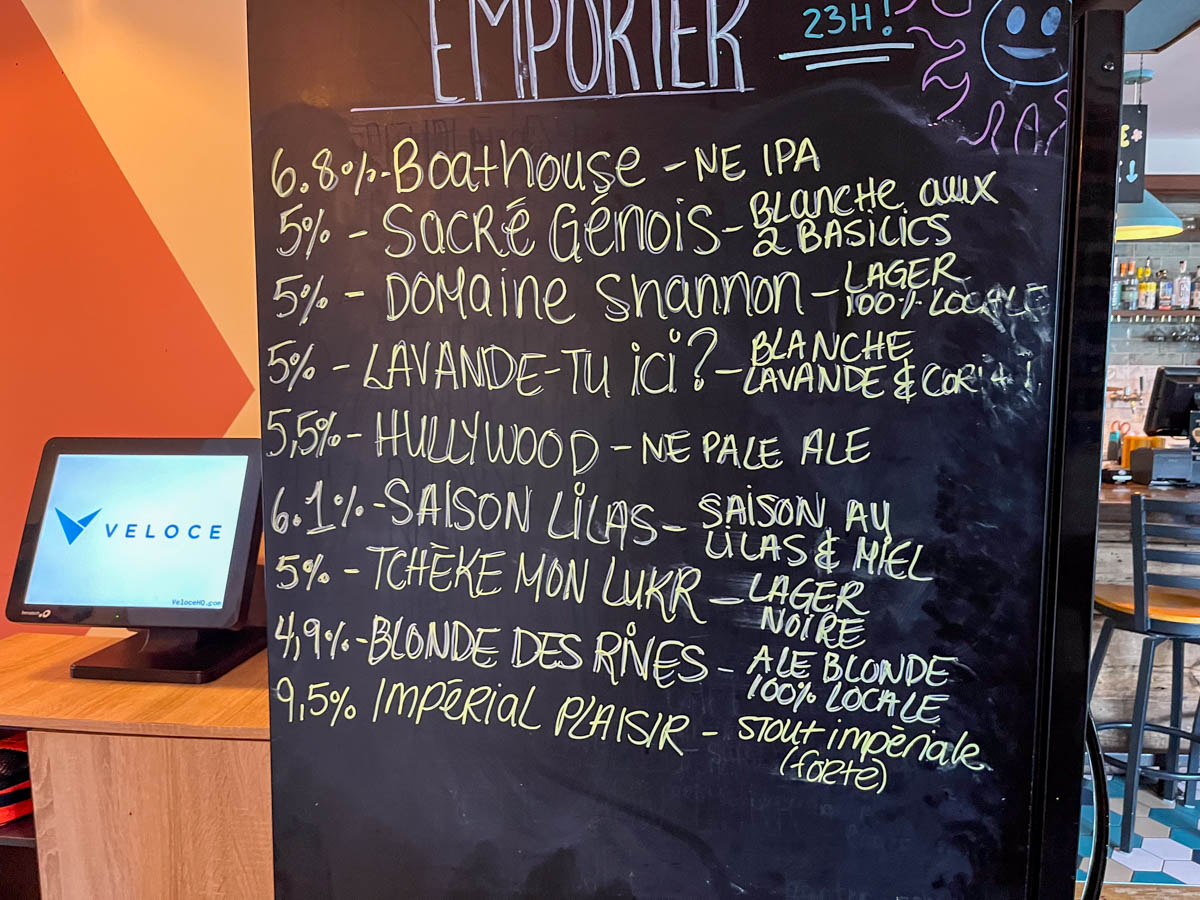 EMPORTER
23H!
6.8% - Boathouse - NE IPA
5% - Sacré Génois - Blanche aux
2 BASILICS
5% - Domaine Shannon - LAGER
100% LOCALE
5% - LAVANDE-TU ici? - BLANCHE
LAVANDE &
5,5% - HULLYWOOD - NE PALE ALE
6.1% - SAISON LILAS - SAISON AU
LILAS & MIEL
5% - TCHÈKE MON LUKR - LAGER
NOIRE
4,9% - BLONDE DES RIVES - ALE BLONDE
100% LOCALE
9,5% IMPÉRIAL PLAISIR - STOUT impériale
(forte)
VELOCE
VeloceHQ.com